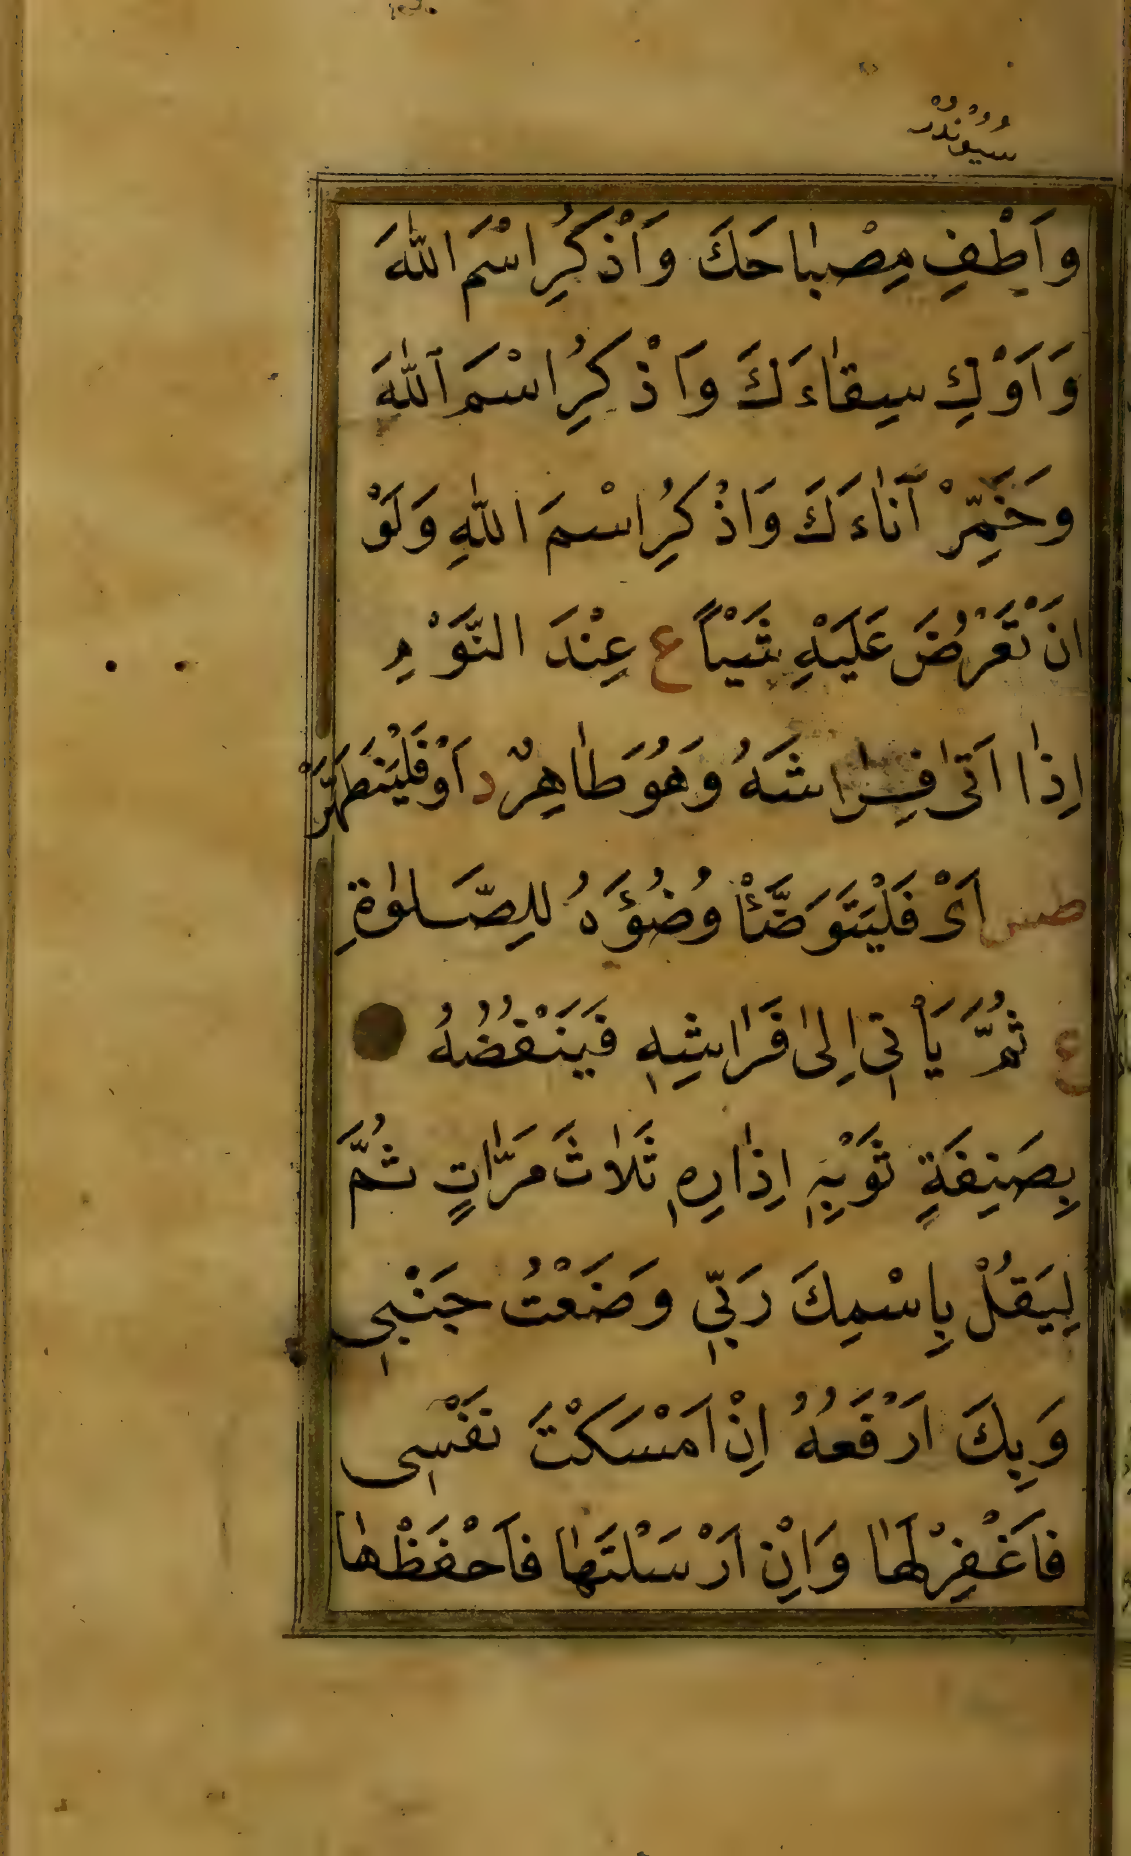 سُيُونْدُرْ
وَاَطْفِ مِصْبٰاحَكَ وَاَذْكُرِ اسْمَ اللّٰهَ
وَاَوْكِ سِيقٰاءَكَ وَاذْكُرِ اسْمَ اللّٰهَ
وَخَمِّرْ آنٰاءَكَ وَاذْكُرِ اسْمَ اللّٰهِ وَلَوْ
انَ تْعَرْضُ عَلَيْهِ شَيْاً ع عِنْدَ النَّوْمِ
اِذٰا اَتٰى فِرٰاشَهُ وَهُوَ طٰاهِرٌ د اَوْ فَلْيَتَطَهَّرْ
طس اَىْ فَلْيَتَوَضَّأْ وُضُؤَهُ لِلصَّلٰوةِ
ع ثُمَّ يَأْتِى اِلىٰ فَرٰاشِهٖ فَيَنْفُضُهُ
بِصَنِفَةِ ثَوْبِهٖ اِذٰارِهٖ ثَلاٰثَ مَرّٰاتٍ ثُمَّ
لِيَقُلْ بِاسْمِكَ رَبّٖى وَضَعْتُ جَنْبٖى
وَبِكَ اَرْفَعُهُ اِنْ اَمْسَكْتَ نَفْسٖى
فَاغْفِرْ لَهٰا وَاِنْ اَرْسَلْتَهٰا فَاحْفَظْهٰا